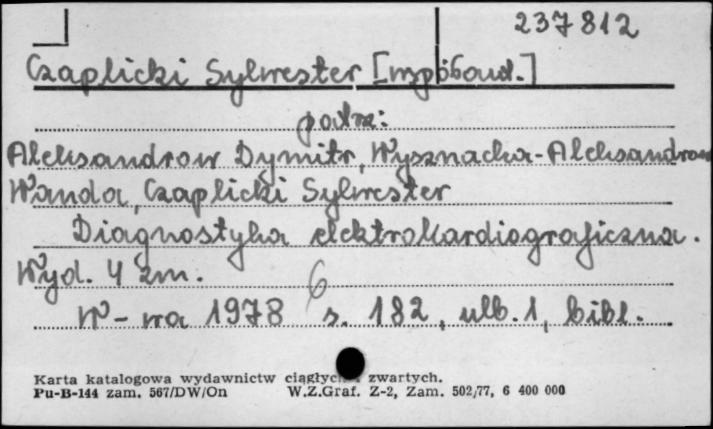 237812
Czaplicki Sylwester [współaut.]
patrz:
Aleksandrow Dymitr, Wysznacka-Aleksandrow
Wanda, Czaplicki Sylwester
Diagnostyka elektrokardiograficzna.
Wyd. 4 zm.
6
W-wa 1978 s. 182, nlb. 1, bibl.
Karta katalogowa wydawnictw ciągłych i zwartych.
Pu-B-144 zam. 567/DW/On W.Z.Graf. Z-2, Zam. 502/77, 6 400 000